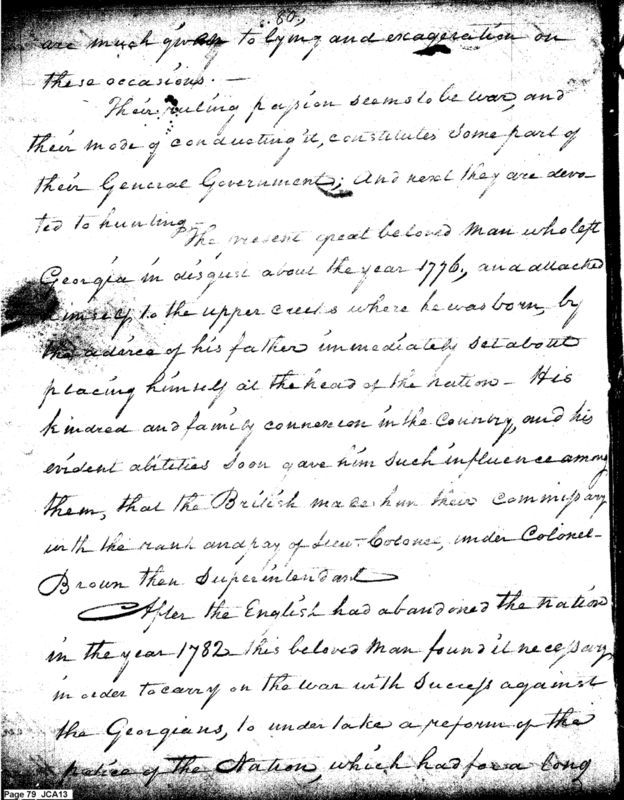 80,
are much given to lying and exageration on
these occasions. —
Their ruling passion seems to be war, and
their mode of conducting it, constitutes some part of
their General Government; And next they are devo-
ted to hunting —
The present great beloved Man who left
Georgia in disgust about the year 1776, and attached
himself to the upper creeks where he was born, by
the advice of his father immediately set about
placing himself at the head of the nation — His
kindred and family connexion in the Country, and his
evident abilities soon gave him such influence among
them, that the British made him their commissary
with the rank and pay of Lieu- Colonel, under Colonel-
Brown then Superintendant
After the English had abandoned the nation
in the year 1782 this beloved Man found it necessary
in order to carry on the war with success against
the Georgians, to under take a reform of the
police of the Nation, which had for a long
Page 79 JCA13